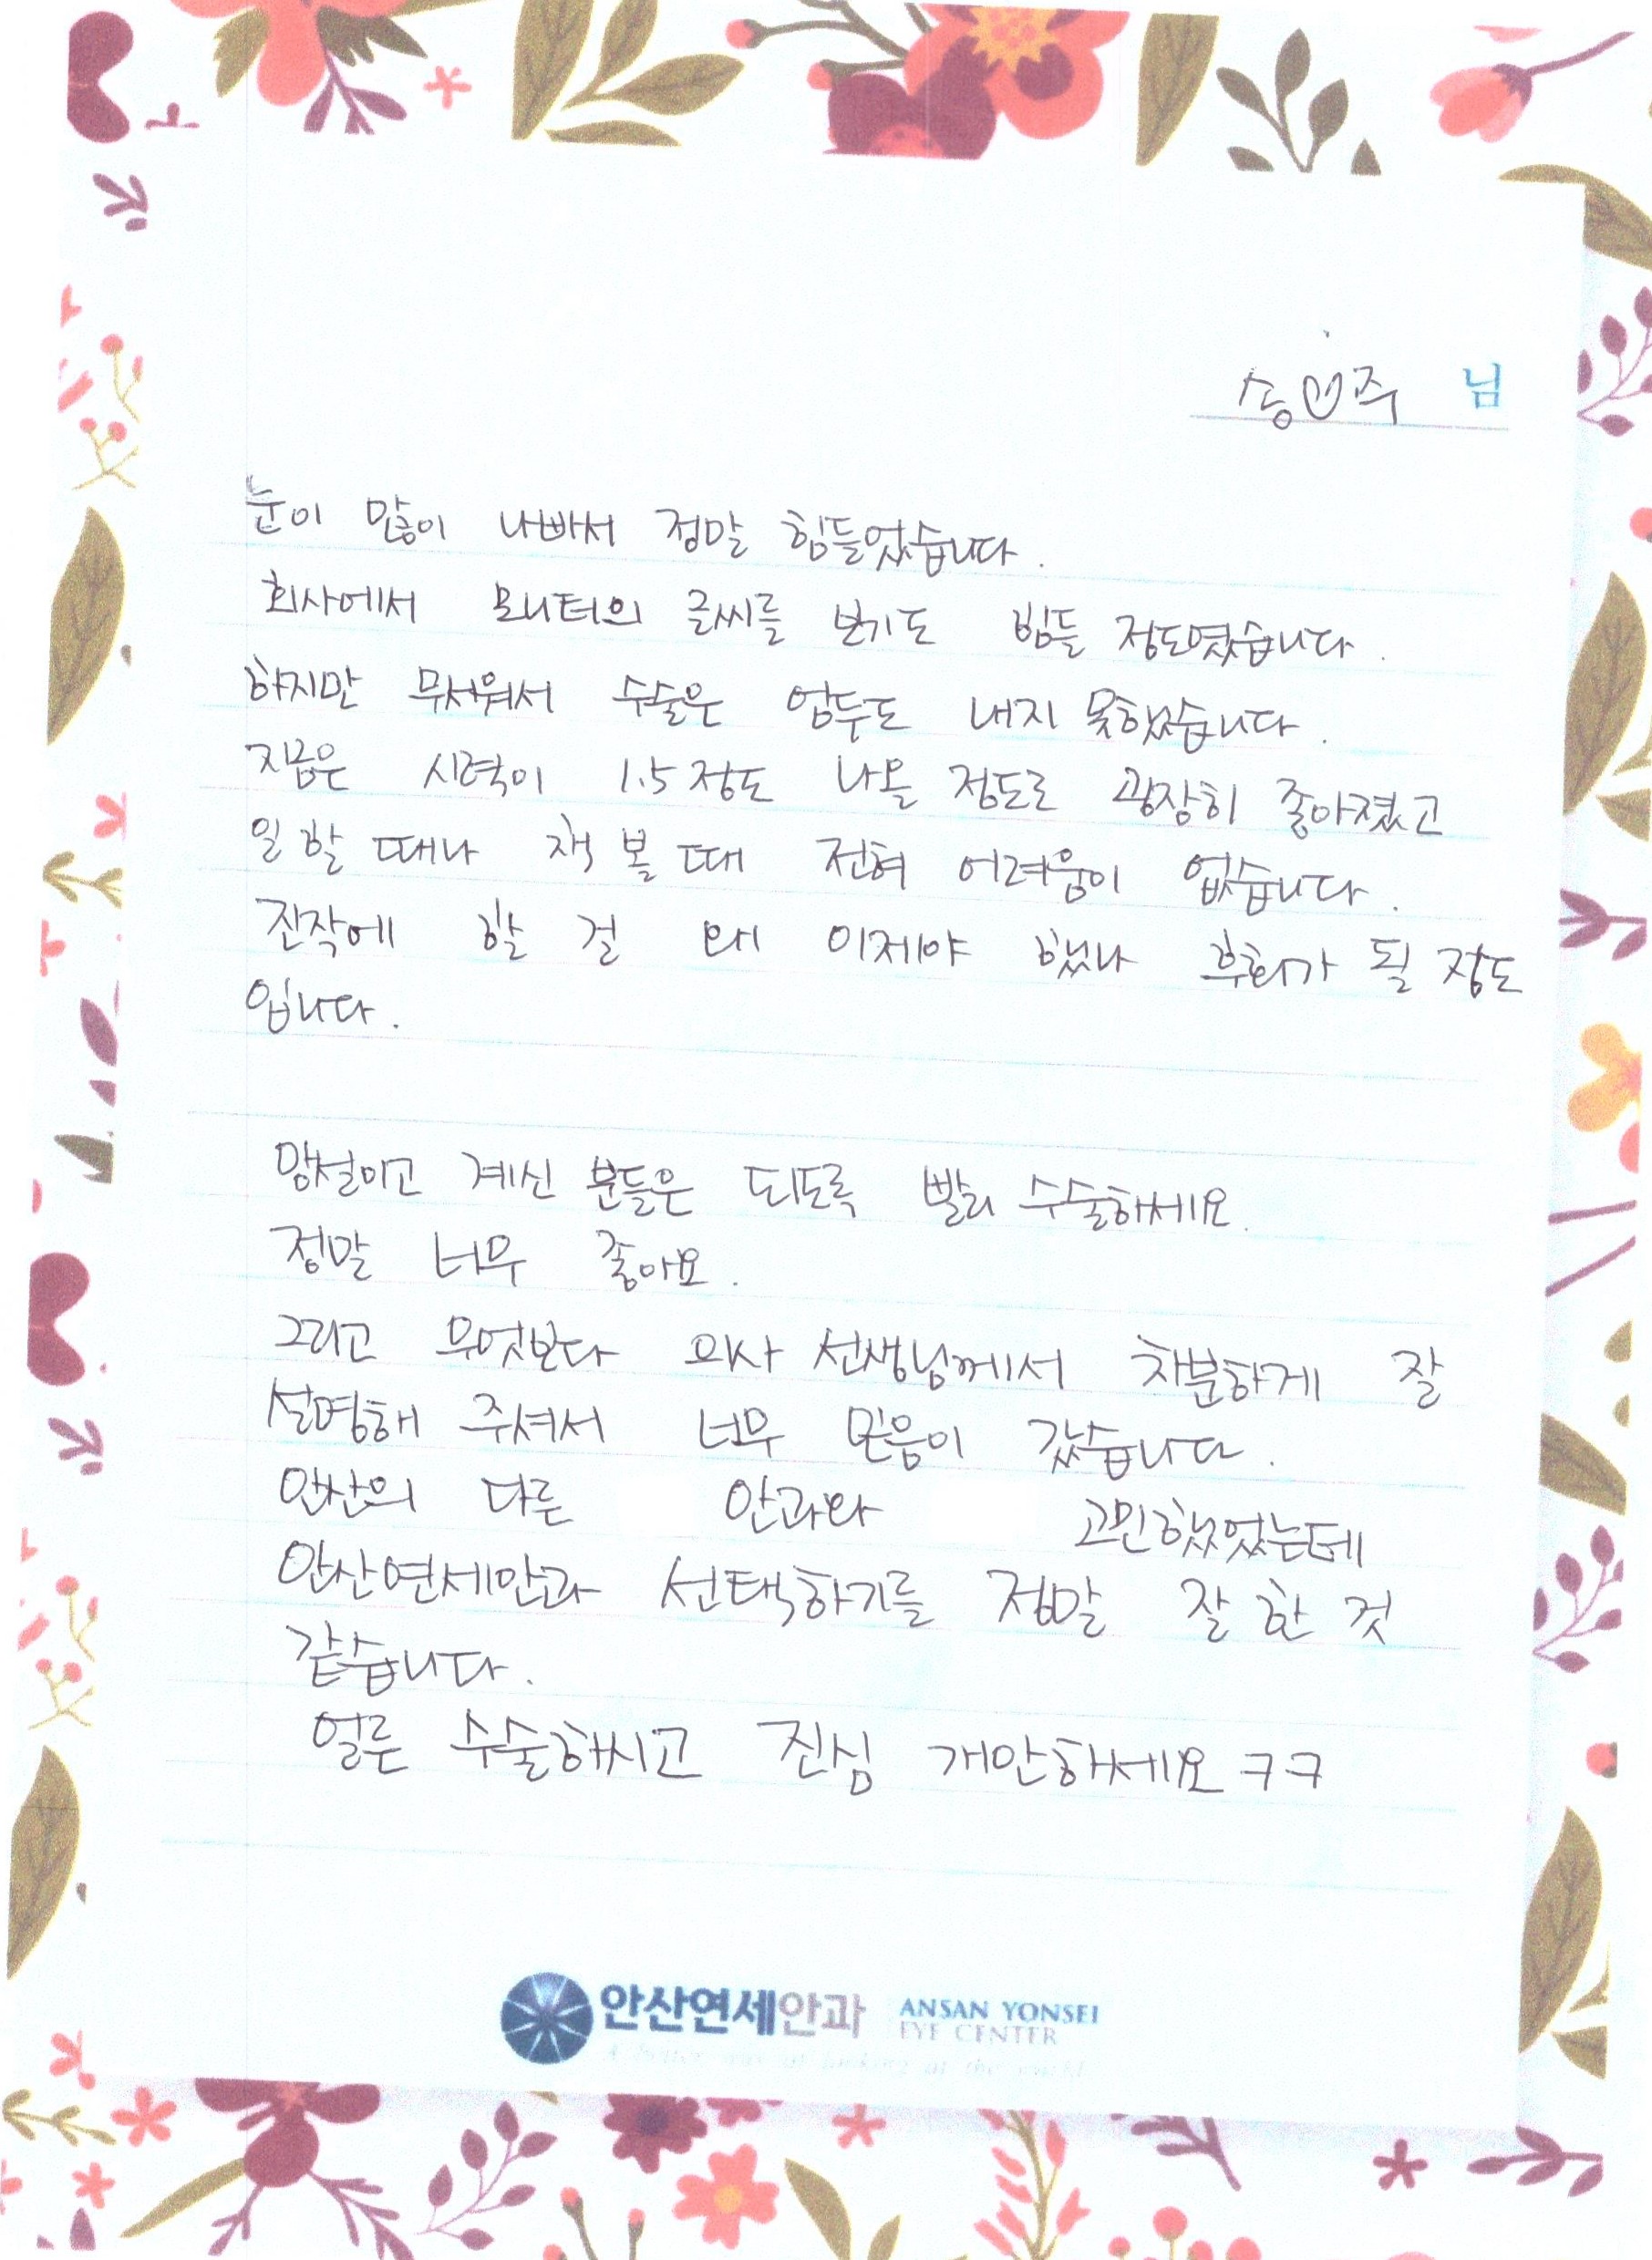 송♡주 님
눈이 많이 나빠서 정말 힘들었습니다.
회사에서 모니터의 글씨를 보기도 힘들 정도였습니다.
하지만 무서워서 수술은 엄두도 내지 못했습니다.
지금은 시력이 1.5정도 나올 정도로 굉장히 좋아졌고
일 할 때나 책 볼 때 전혀 어려움이 없습니다.
진작에 할 걸 왜 이제야 했나 후회가 될 정도
입니다.
망설이고 계신 분들은 되도록 빨리 수술하세요.
정말 너무 좋아요.
그리고 무엇보다 의사 선생님께서 차분하게 잘
설명해 주셔서 너무 믿음이 갔습니다.
안산의 다른 안과와 고민했었는데
안산연세안과 선택하기를 정말 잘 한 것
같습니다.
얼른 수술하시고 진심 개안하세요 ㅋㅋ
안산연세안과 ANSAN YONSEI
EYE CENTER
A better way of looking at the world